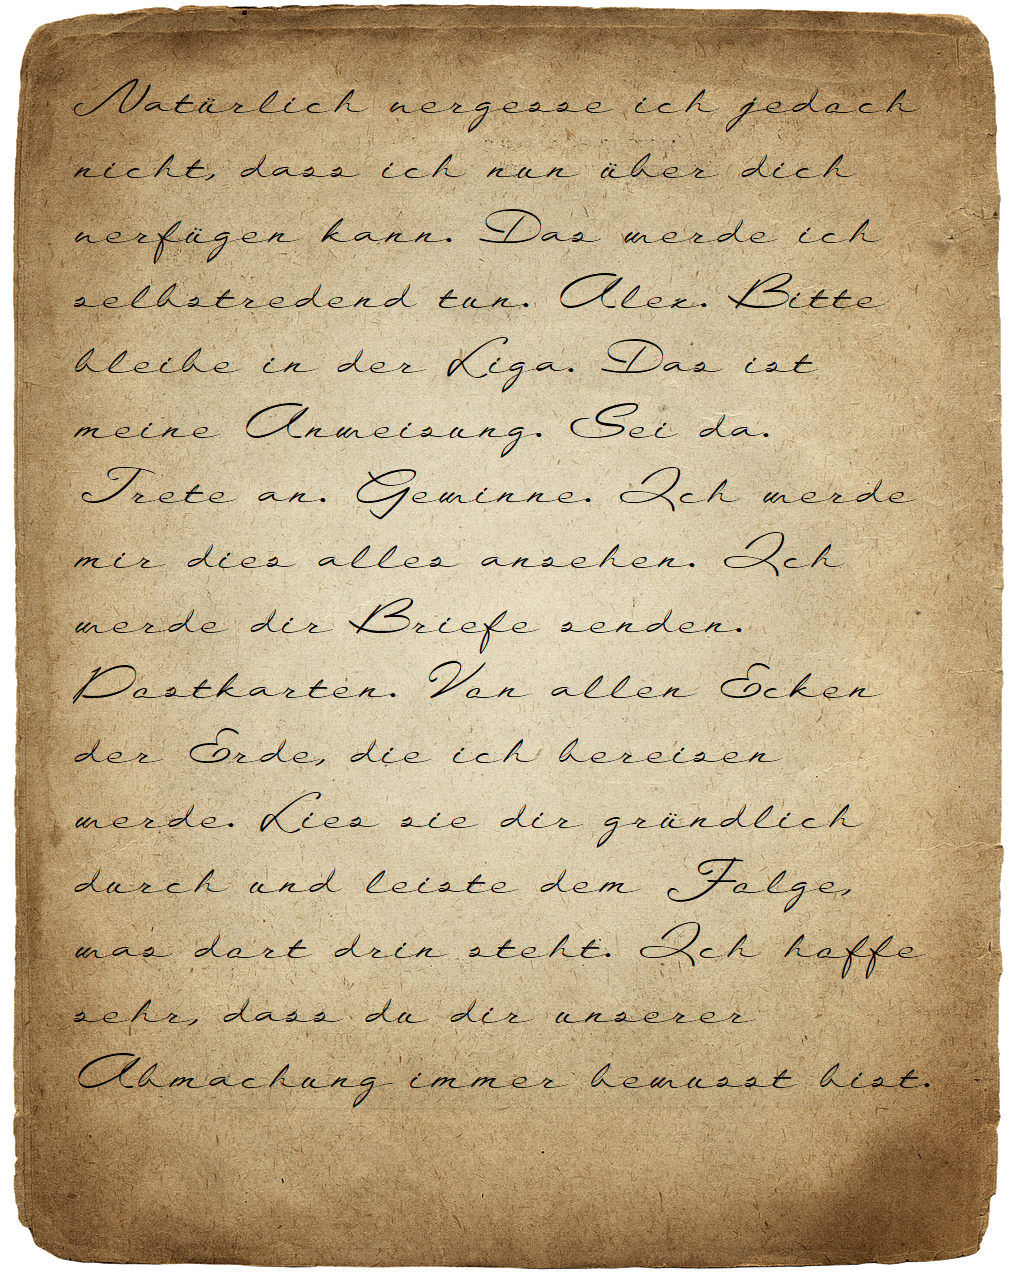 Natürlich vergesse ich jedoch
nicht, dass ich nun über dich
verfügen kann. Das werde ich
selbstredend tun. Alex. Bitte
bleibe in der Liga. Das ist
meine Anweisung. Sei da.
Trete an. Gewinne. Ich werde
mir dies alles ansehen. Ich
werde dir Briefe senden.
Postkarten. Von allen Ecken
der Erde, die ich bereisen
werde. Lies sie dir gründlich
durch und leiste dem Folge,
was dort drin steht. Ich hoffe
sehr, dass du dir unserer
Abmachung immer bewusst bist.